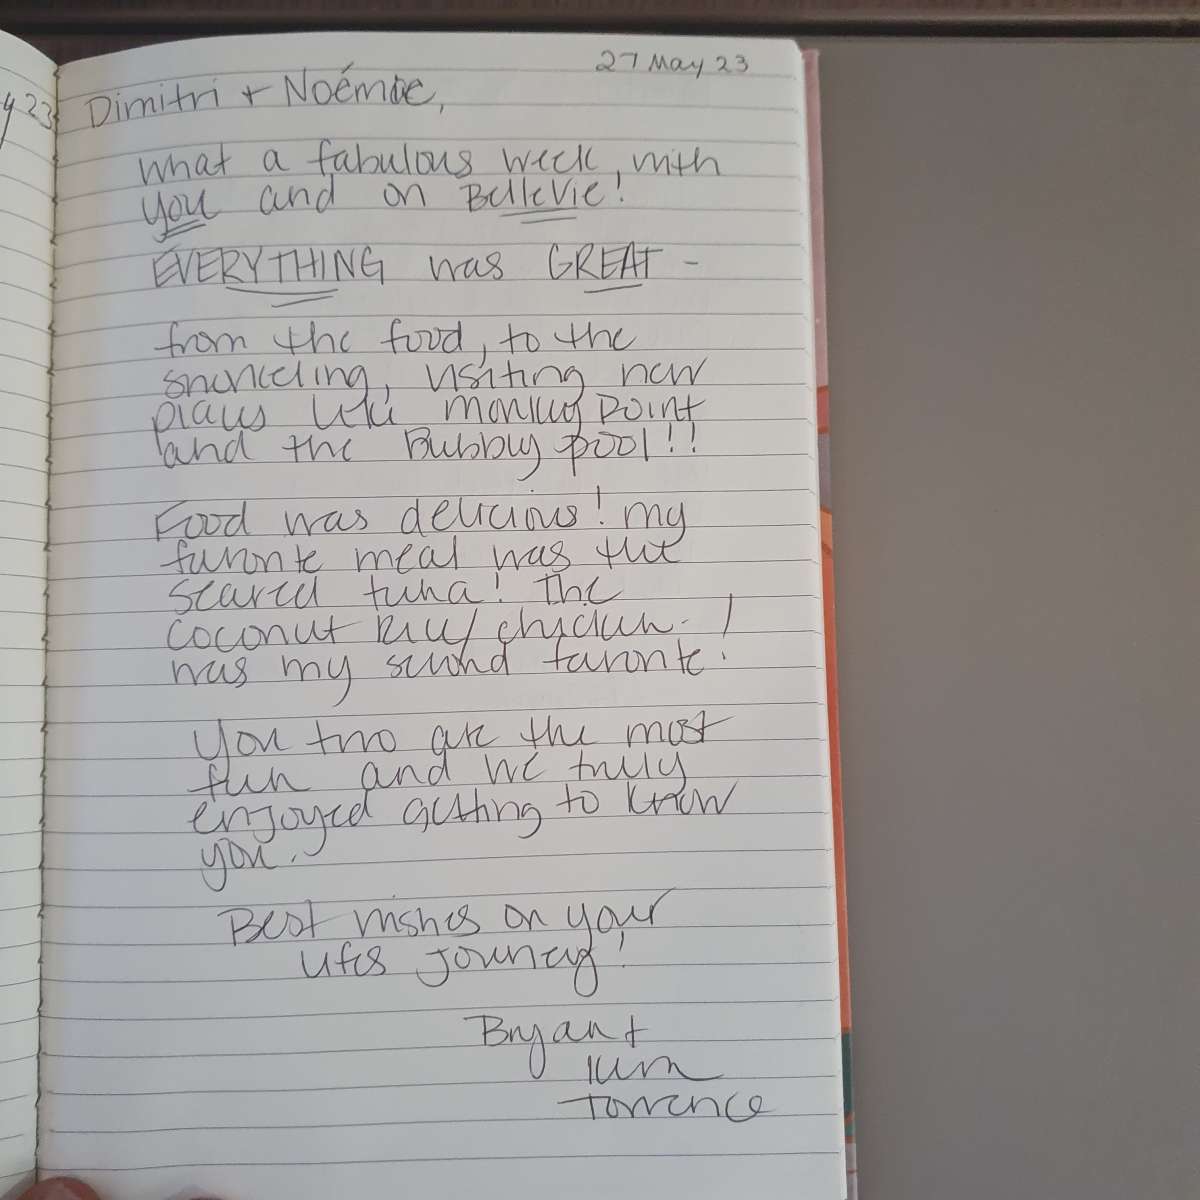 y 23
27 May 23
Dimitri + Noémie,
What a fabulous week, with
you and on BelleVie!
EVERYTHING was GREAT -
from the food, to the
snorkeling, visiting new
places like Monkey Point
and the Bubbly pool!!
Food was delicious! My
favorite meal was the
seared tuna! The
coconut rice/chicken
was my second favorite!
You two are the most
fun and we truly
enjoyed getting to know
you.
Best wishes on your
lifes journey!
Bryan +
Kim
Torrence